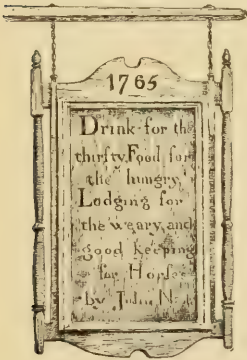 1765
Drink for th
thirsty, Food for
the hungry,
Lodging for
the weary, and
good keeping
for Horses
by John N